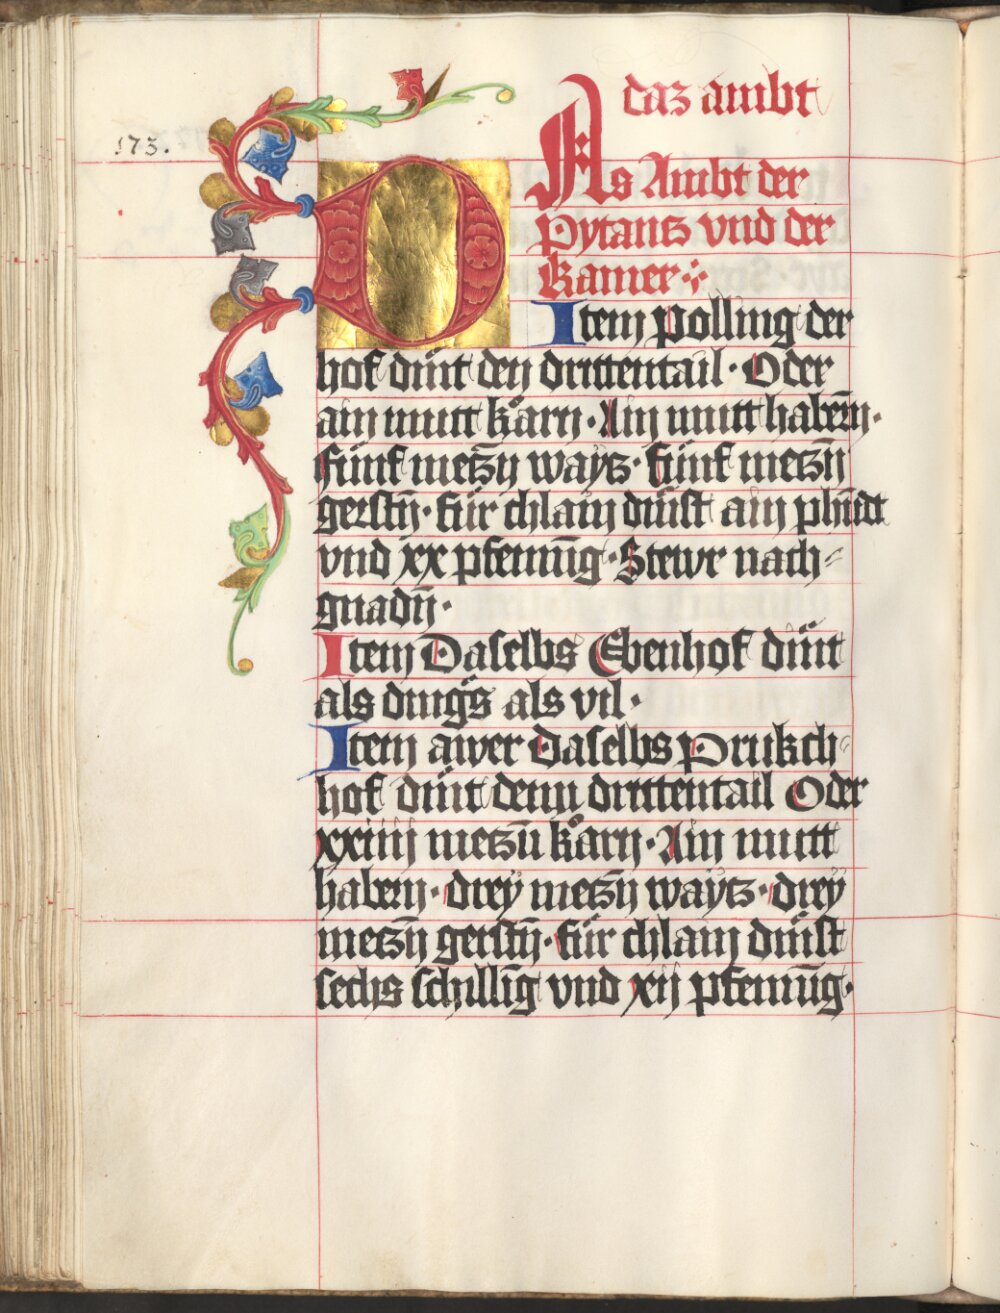 daz ambt
173.
DAs Ambt der
Pytantz vnd der
Kamer
Item Polling der
hof dint den drittentail · Oder
ain mutt kǎrn · Ain mutt habern̄ ·
fünf metzn̄ wayts · fünf metzn̄
gerstn̄ · für chlain dinst ain phūdt
vnd xx pfenning · Stewr nach-
gnadn̄ ·
Item Daselbs Ebenhof dint
als dings als vil ·
Item awer Daselbs Prukch-
hof dint denn drittentail Oder
xxiiij metzn̄ kǎrn · Ain mutt
habern · drey metzn̄ wayts · drey
metzn̄ gerstn̄ · für chlain dinst
sechs schilling vnd xij pfenīng ·